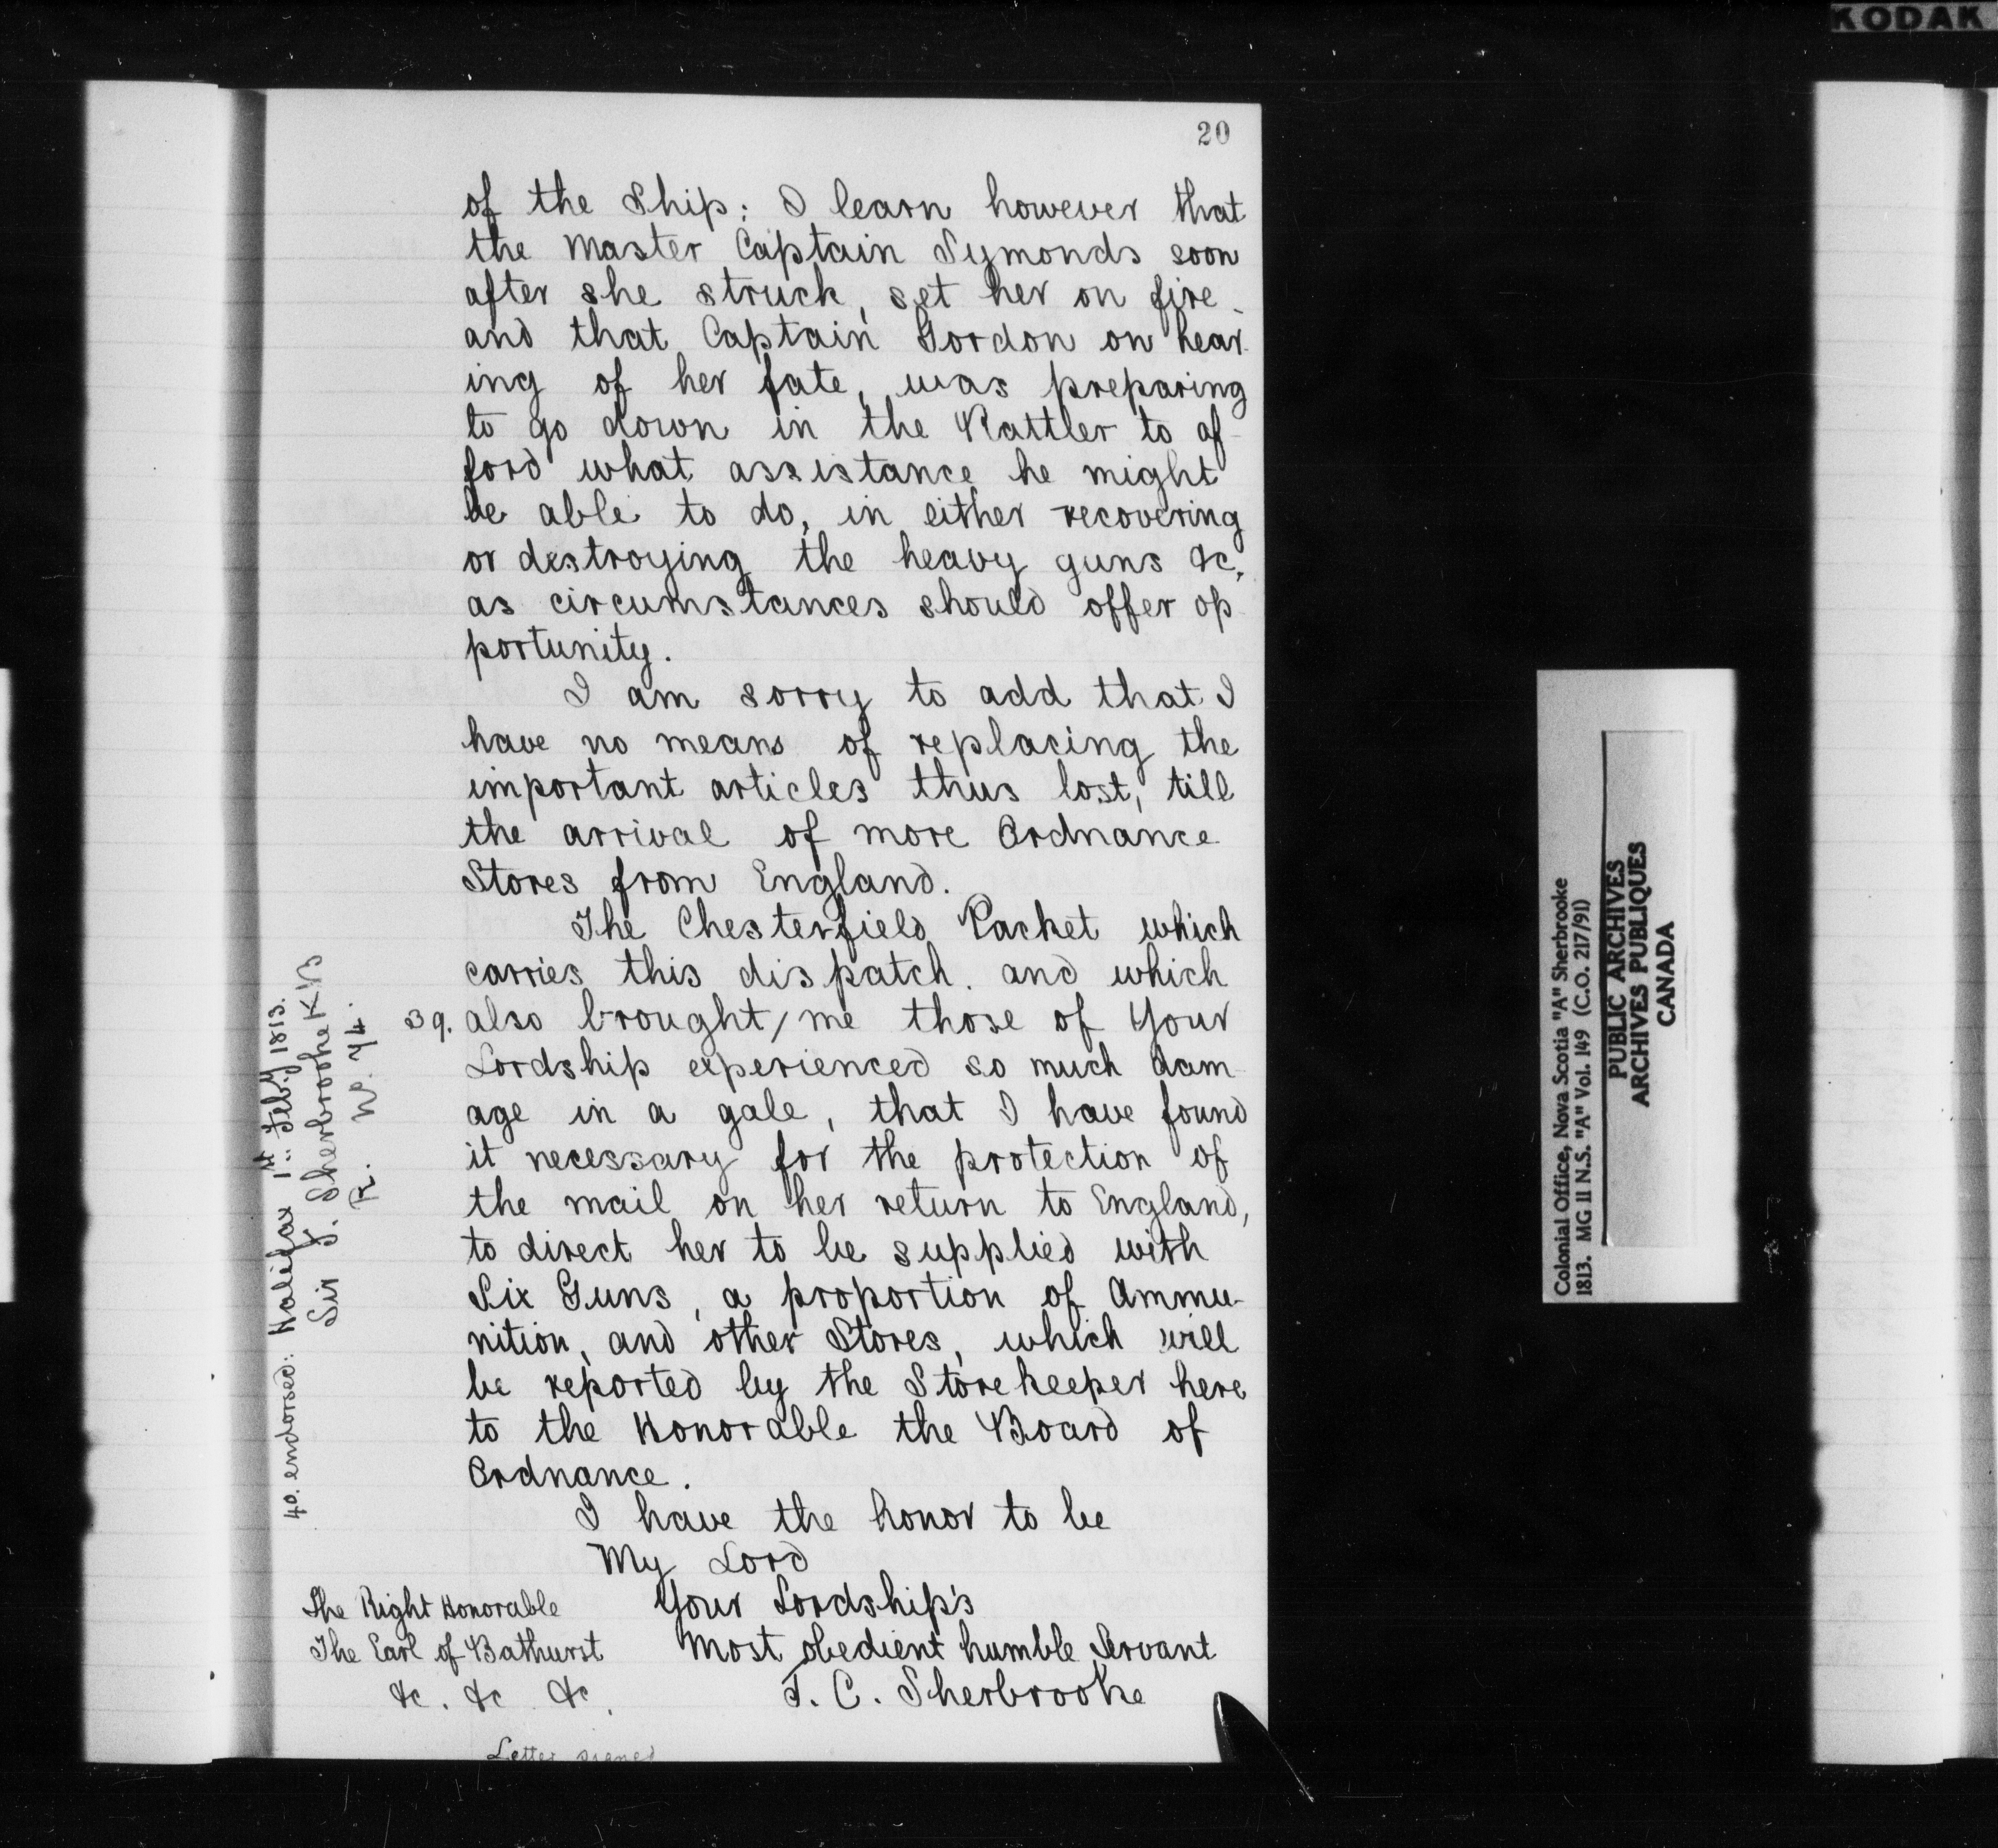 KODAK
20
of the Ship: I learn however that
the Master Captain Symonds soon
after she struck, set her on fire
and that Captain Gordon on hear-
ing of her fate, was preparing
to go down in the Rattler to af-
ford what assistance he might
be able to do, in either recovering
or destroying the heavy guns &c,
as circumstances should offer op
portunity.
I am sorry to add that I
have no means of replacing the
important articles thus lost, till
the arrival of more Ordnance
Stores from England.
The Chesterfield Packet which
carries this dispatch. and which
39. also brought/me those of Your
Lordship experienced so much dam-
age in a gale, that I have found
it necessary for the protection of
the mail on her return to England,
to direct her to be supplied with
Six Guns, a proportion of Ammu-
nition, and other Stores, which will
be reported by the Storekeeper here
to the Honorable the Board of
Ordnance.
I have the honor to be
My Lord
Your Lordship's
Most obedient humble Servant
J. C. Sherbrooke
The Right Honorable
The Earl of Bathurst
&c. &c &c.
Letter signed
40. endorsed: Halifax 1st Feby 1813.
Sir J. Sherbrooke KB
R. No. 74.
Colonial Office, Nova Scotia "A" Sherbrooke
1813. MG 11 N.S. "A" Vol. 149 (C.O. 217/91)
PUBLIC ARCHIVES
ARCHIVES PUBLIQUES
CANADA